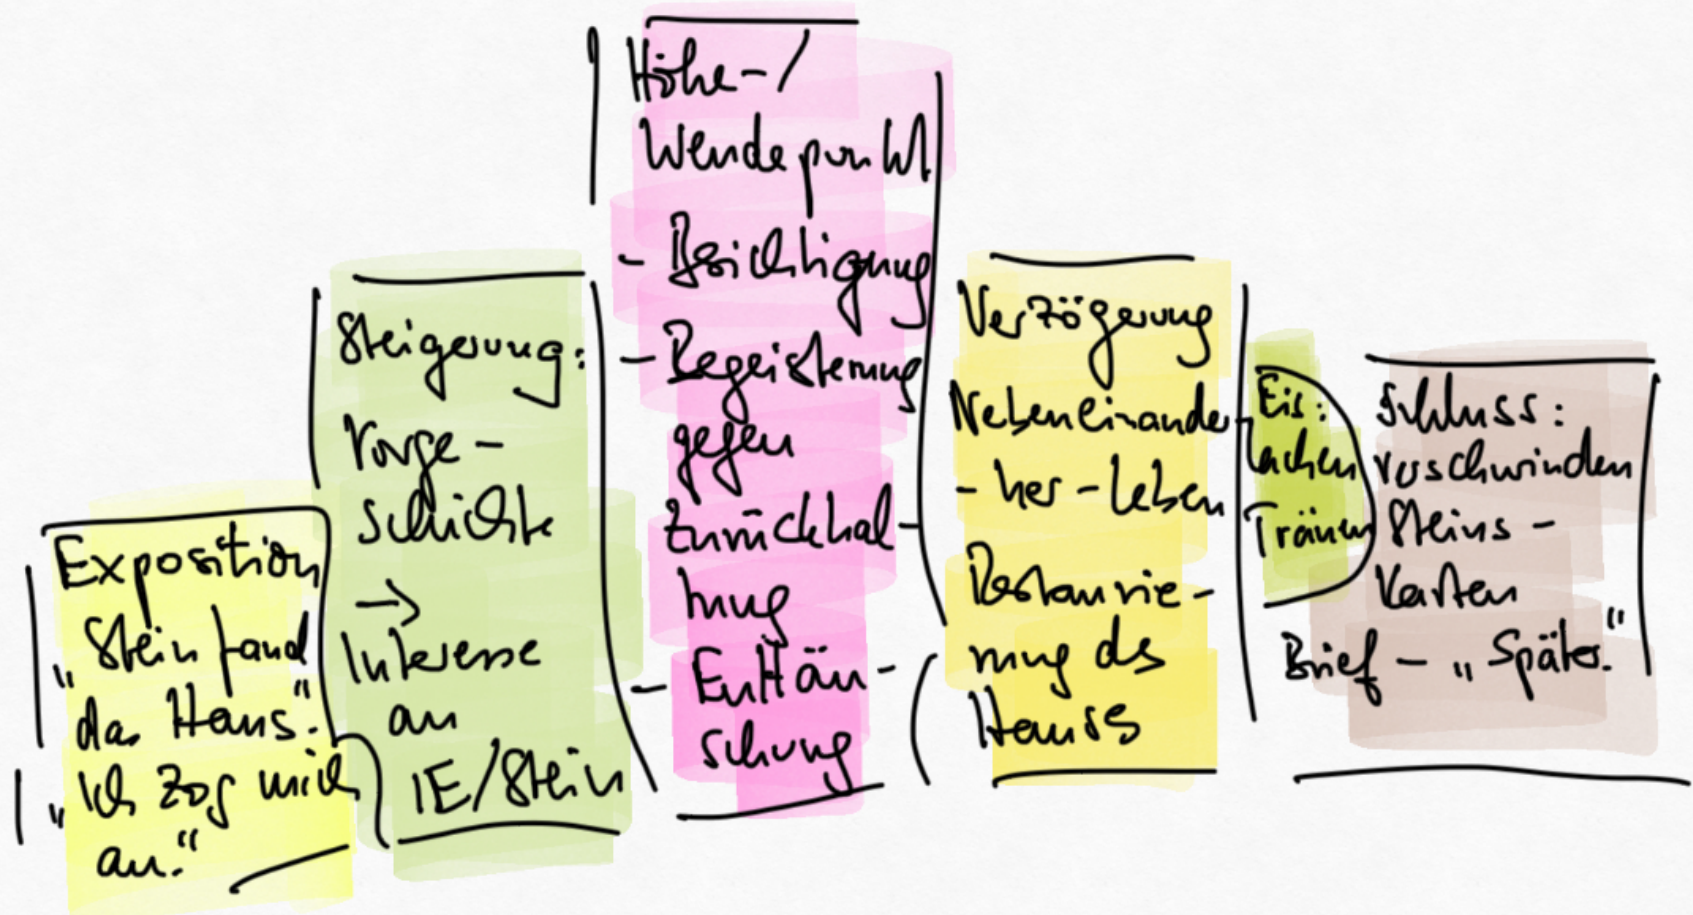 Exposition
„Stein fand
das Haus".
„Ich zog mich
an."
Steigerung:
Vorge-
schichte
→
Interesse
an
IE/Stein
Höhe-/
Wendepunkt
- Besichtigung
- Begeisterung
gegen
Zurückhal-
tung
- Enttäu-
schung
Verzögerung
Nebeneinander-
- her-leben
Restaurie-
rung des
Hauses
Eis:
Lachen
Tränen
Schluss:
verschwinden
Steins -
Karten
Brief - „Später."